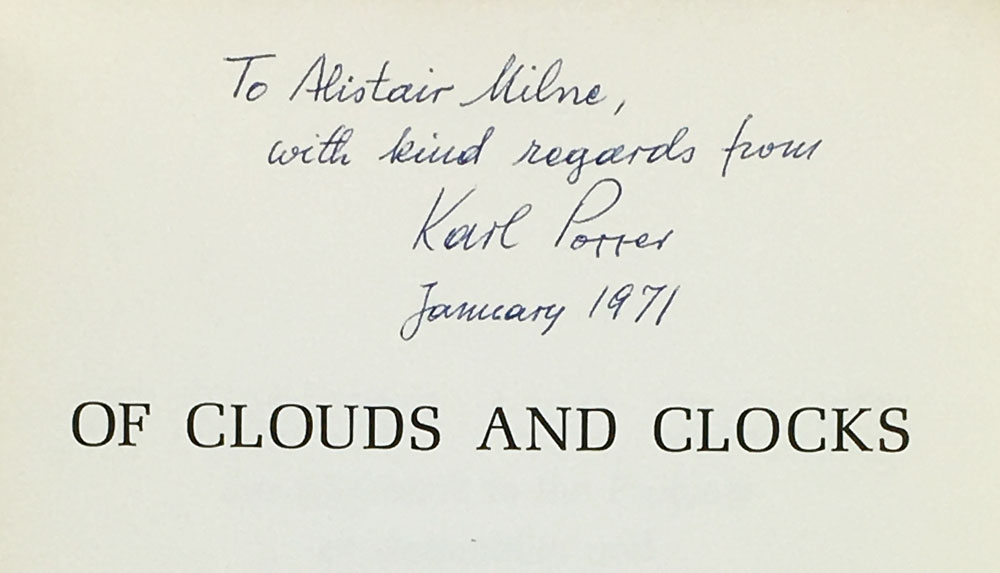 To Alistair Milne,
with kind regards from
Karl Popper
January 1971
OF CLOUDS AND CLOCKS